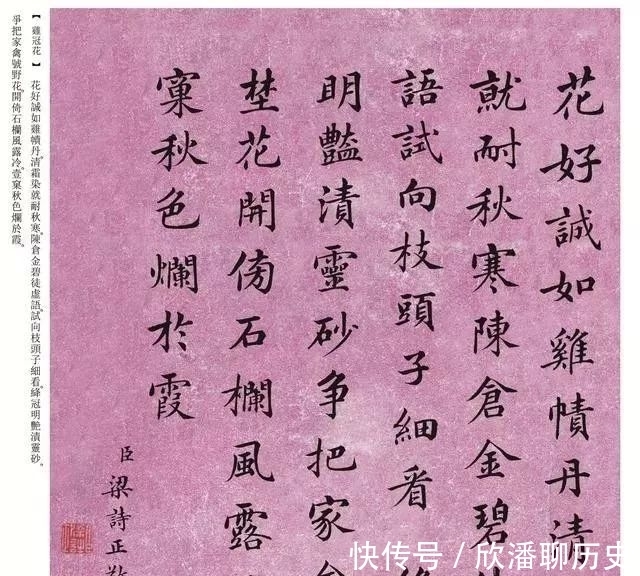 花好誠如雞幘丹清
就耐秋寒陳倉金碧
語試向枝頭子細看
明豔漬靈砂争把家
埜花開傍石欄風露
窠秋色爛於霞
臣梁詩正
【雞冠花】 花好誠如雞幘丹。清霜染就耐秋寒。陳倉金碧徒虛語。試向枝頭子細看。絳冠明艷漬靈砂。
爭把家禽號野花。開倚石欄風露冷。壹窠秋色爛於霞。
快传号 / 欣潘聊历史